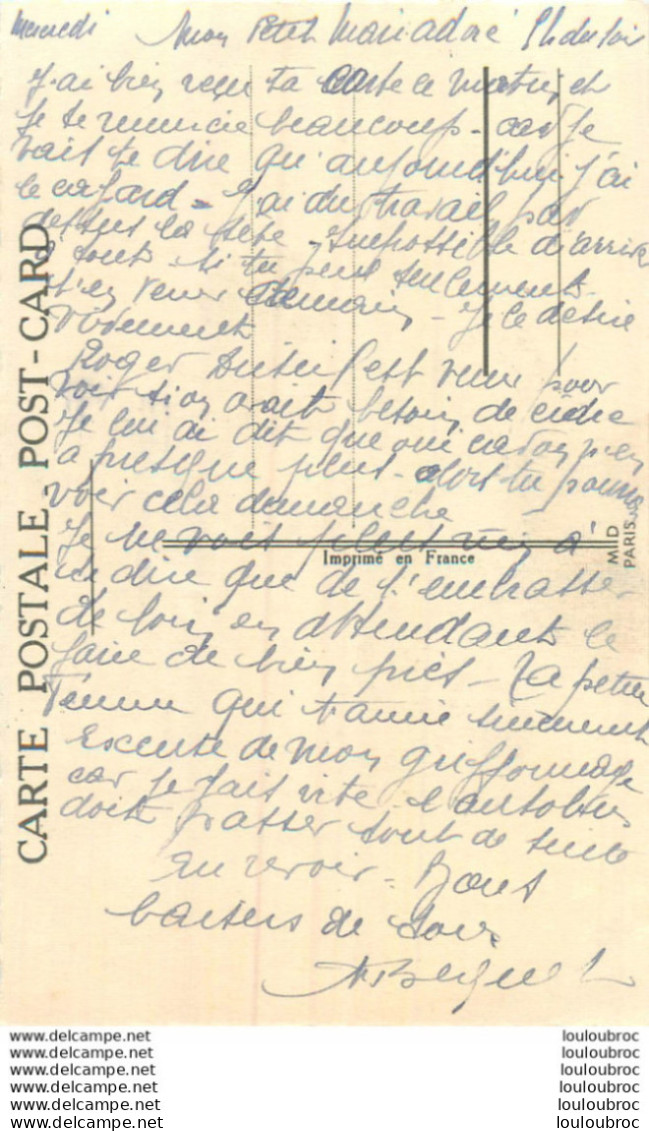 Mercredi Mon Petit Mari adoré 5h du soir
J'ai bien reçu ta carte ce matin, et
je te remercie beaucoup - car je
vait te dire qu'aujourd'hui j'ai
le cafard = J'ai du travail par
dessus la tête - Impossible d'arrivé
à tout. Si tu peux seulement
t'en venir demain - Je le désire
vivement
Roger est venu pour
voir si on avait besoin de cidre
Je lui ai dit que oui car on n'en
a presque plus - alors tu pourras
voir cela dimanche
Je ne vois plus rien à
te dire que de t'embrasser
de loin en attendant le
faire de bien près - Ta petite
Femme qui t'aime
Excuse de mon griffonnage
car je fait vite l'autobus
doit passer tout de suite
Au revoir - Bons
baisers de
CARTE POSTALE - POST-CARD
Imprimé en France
M.D
PARIS
www.delcampe.net
www.delcampe.net
www.delcampe.net
www.delcampe.net
www.delcampe.net
www.delcampe.net
louloubroc
louloubroc
louloubroc
louloubroc
louloubroc
louloubroc